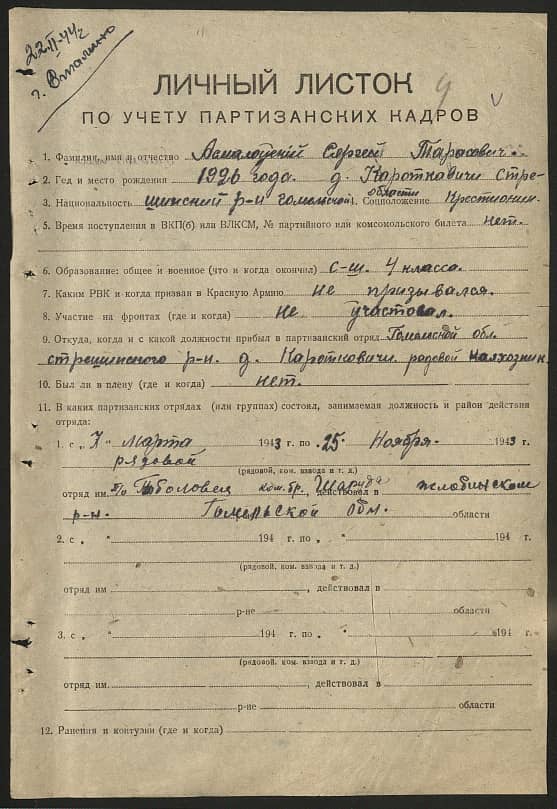 22.II-44г
г.
ЛИЧНЫЙ ЛИСТОК
ПО УЧЕТУ ПАРТИЗАНСКИХ КАДРОВ
1. Фамилия, имя и отчество Сергей Тарасович.
2. Год и место рождения 1926 года. д. Кароткавичи Стре-
3. Национальность шинский р-н гомельской области 4. Соцположение Крестианин
5. Время поступления в ВКП(б) или ВЛКСМ, № партийного или комсомольского билета нет.
6. Образование: общее и военное (что и когда окончил) с-ш. 4 класса.
7. Каким РВК и когда призван в Красную Армию не призывался.
8. Участие на фронтах (где и когда) не участовал.
9. Откуда, когда и с какой должности прибыл в партизанский отряд Гомельской обл.
стрешинского р-н. д. Кароткавичи. родовой калхозник.
10. Был ли в плену (где и когда) нет.
11. В каких партизанских отрядах (или группах) состоял, занимаемая должность и район действия
отряда:
1. с „ 7 " марта 1943 г. по „ 25 " Ноября. 1943 г.
рядовой
(рядовой, ком. взвода и т. д.)
отряд им. п/о Боловец ком. бр. действовал в жлобинском
р-н. Гомельской Обл. области
2. с „ " 194 г. по „ " 194 г.
(рядовой, ком. взвода и т. д.)
отряд им. , действовал в
р-не области
3. с „ " 194 г. по „ " 194 г.
(рядовой, ком. взвода и т. д.)
отряд им. , действовал в
р-не области
12. Ранения и контузии (где и когда)